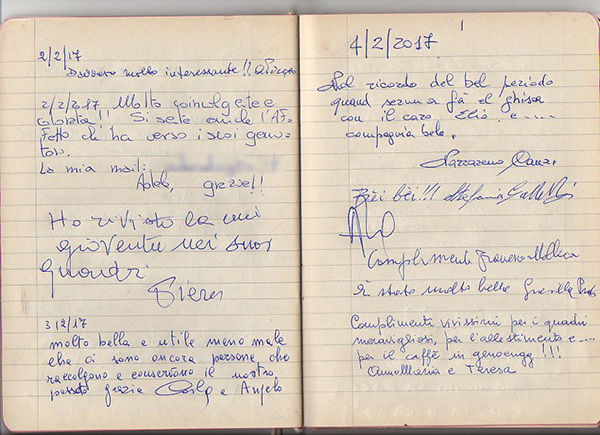 2/2/17
Davvero molto interessante!!
2/2/2017 Molto coinvolgete e
colorata!! Si sete anche l'Af-
fetto che ha verso i suoi geni-
tori.
La mia mail:
Adele, grazie!!
Ho rivisto la mi
gioventù nei suoi
quadri
Piera
3/2/17
molto bella e utile meno male
che ci sono ancora persone che
raccolgono e conservono il nostro
passato grazie Carlo e Angelo
4/2/2017
1
Nel ricordo del bel periodo
quand serum a fà el ghisa
con il caro Elio e.....
compagnia bela.
Nazzareno
Bèi bèi!!! Stefania
Complimenti Franco Mollica
È stato molto bello Graziella
Complimenti vivissimi per i quadri
meravigliosi, per l'allestimento e....
per il caffè in genoeugg!!!
AnnaMaria e Teresa